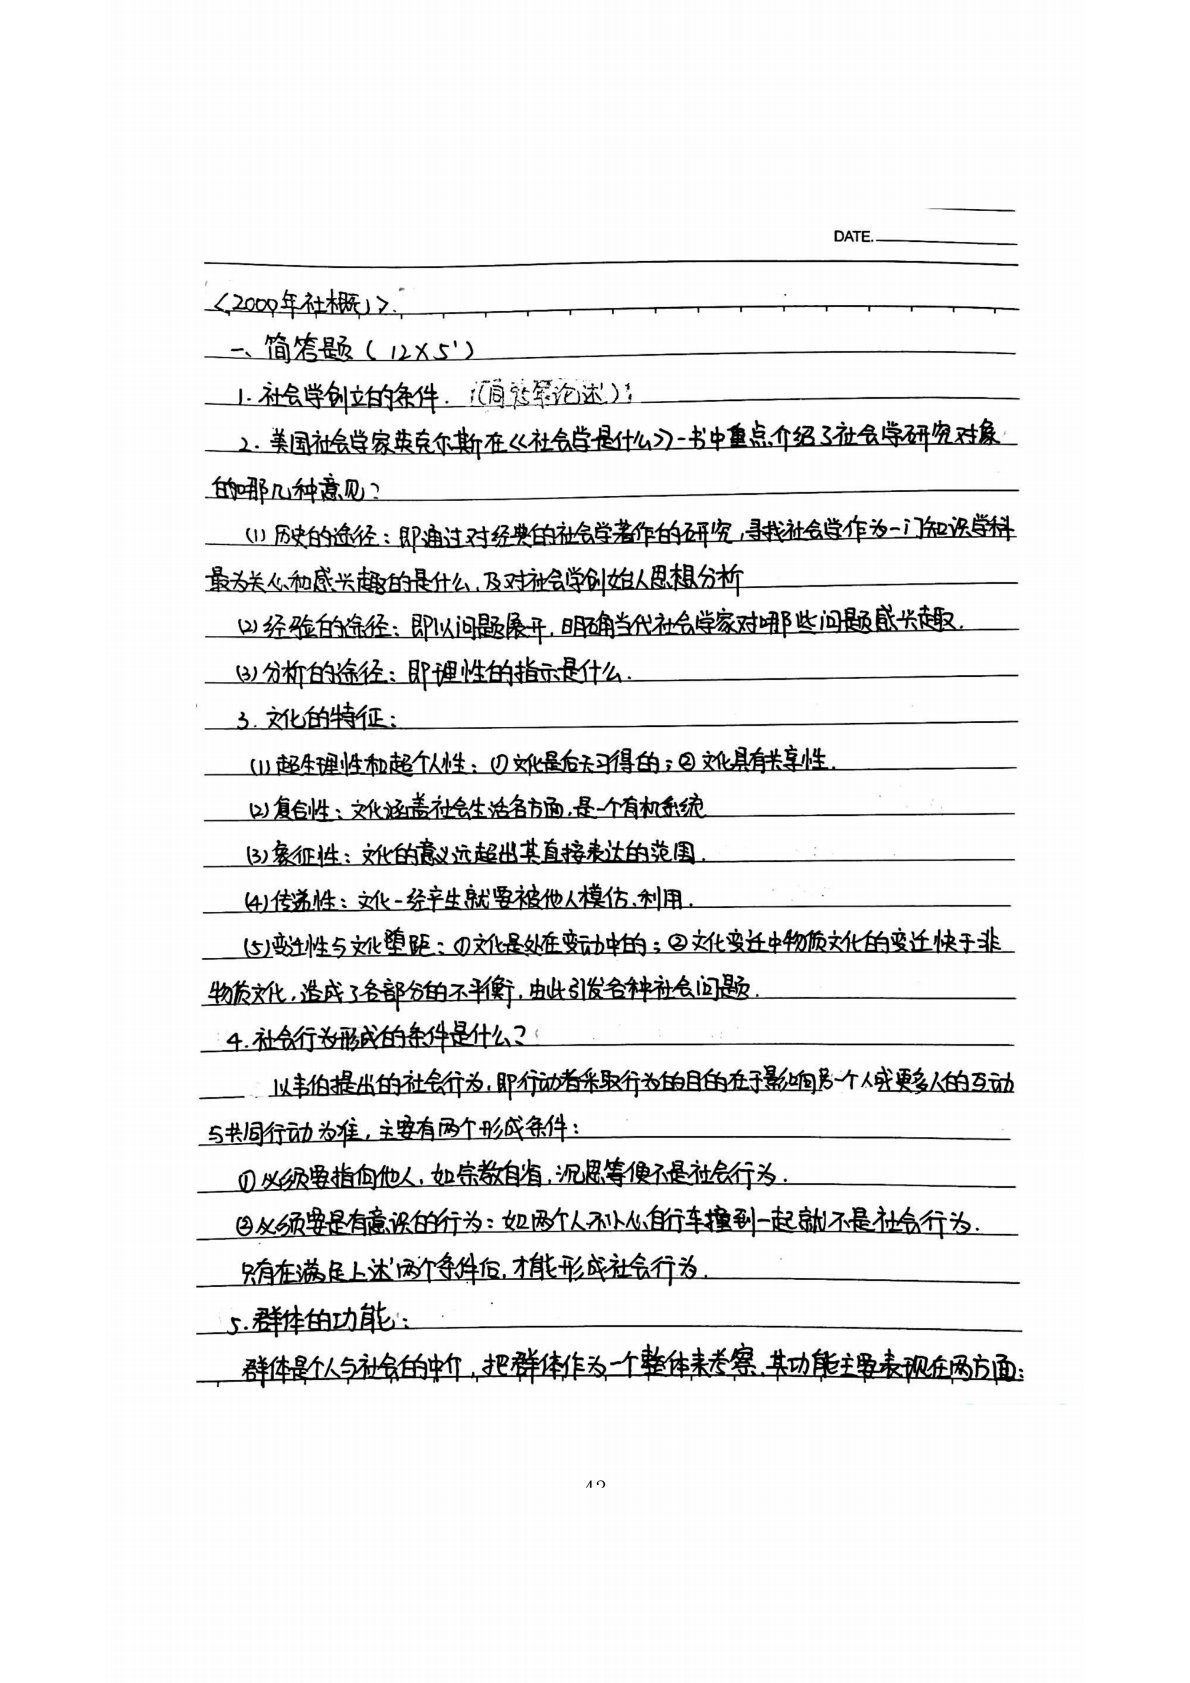 DATE.
<2009年社概>.
一、简答题(12×5')
1.社会学创立的条件.
2.美国社会学家英克尔斯在《社会学是什么》一书中重点介绍了社会学研究对象
的哪几种意见?
(1)历史的途径:即通过对经典的社会学著作的研究,寻找社会学作为一门知识学科
最为关心和感兴趣的是什么,及对社会学创始人思想分析
(2)经验的途径:即以问题展开,明确当代社会学家对哪些问题感兴趣.
(3)分析的途径:即理性的指示是什么.
3.文化的特征:
(1)超生理性和超个人性:①文化是后天习得的;②文化具有共享性.
(2)复合性:文化涵盖社会生活各方面,是一个有机系统
(3)象征性:文化的意义远超出其直接表达的范围.
(4)传递性:文化一经产生就要被他人模仿、利用.
(5)变迁性与文化堕距:①文化是处在变动中的;②文化变迁中物质文化的变迁快于非
物质文化,造成了各部分的不平衡,由此引发各种社会问题.
4.社会行为形成的条件是什么?
以韦伯提出的社会行为,即行动者采取行为的目的在于影响另一个人或更多人的互动
与共同行动为准,主要有两个形成条件:
①必须要指向他人,如宗教自省,沉思等便不是社会行为.
②必须要是有意识的行为:如两个人不小心自行车撞到一起就不是社会行为.
只有在满足上述两个条件后,才能形成社会行为.
5.群体的功能:
群体是个人与社会的中介,把群体作为一个整体来考察,其功能主要表现在两方面: